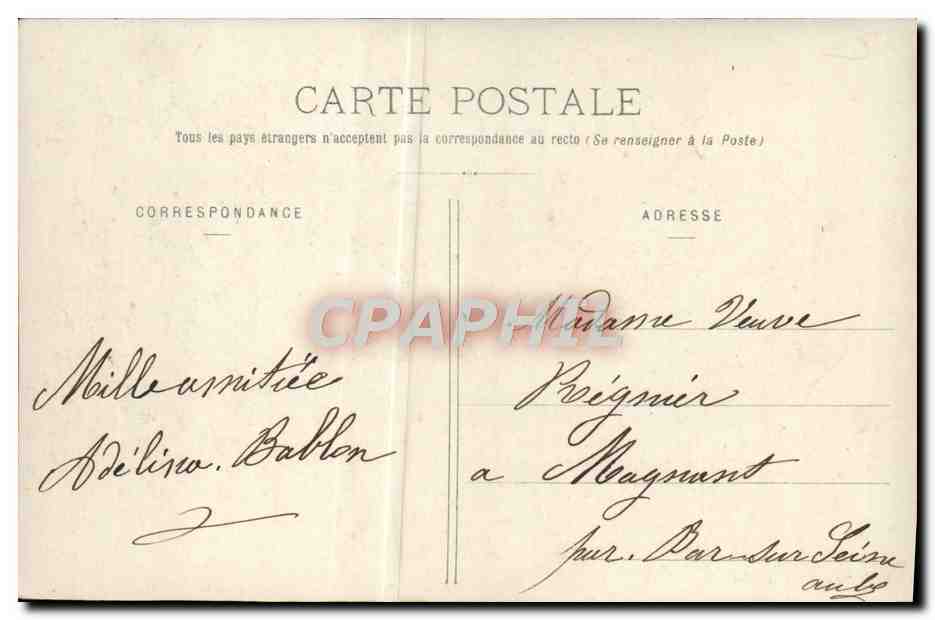 CARTE POSTALE
Tous les pays étrangers n'acceptent pas la correspondance au recto (Se renseigner à la Poste)
CORRESPONDANCE
ADRESSE
CPAPHIL
Mille amitiée
Adélina. Bablon
Madame Veuve
Régnier
a Magnant
par. Bar-sur Seine
aube